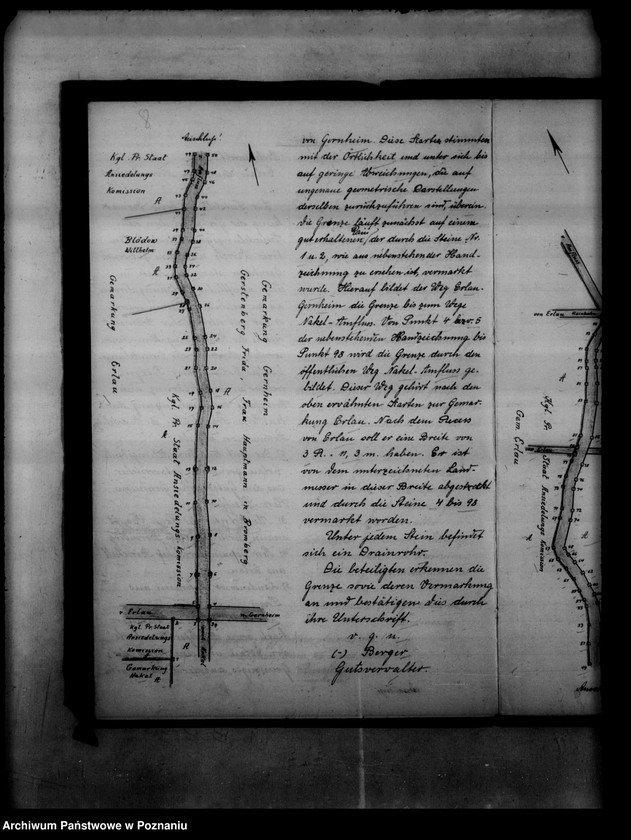 Anschluss!
Kgl. Pr. Staat
Ansiedelungs
Komission
A
Blödex
Wilhelm
A
Gemarkung Erlau
Gemarkung Gernheim
Gerstenberg Frida, Frau Hauptmann in Bromberg
A
Kgl. Pr. Staat Ansiedelungs-Komission
A
v. Erlau
n. Gernheim
Kgl. Pr. Staat
Ansiedelungs
Komission
A
Gemarkung
Nakel
A
von Gernheim. Diese Karten stimmten
mit der Örtlichkeit und unter sich bis
auf geringe Abweichungen, die auf
ungenaue geometrische Darstellungen
derselben zurückzuführen sind, überein.
Die Grenze läuft zunächst auf einem
gut erhaltenen Rain, der durch die Steine Nr.
1 u. 2, wie aus nebenstehender Hand-
zeichnung zu ersehen ist, vermarkt
wurde. Hierauf bildet der Weg Erlau-
Gernheim die Grenze bis zum Wege
Nakel-Amfluss. Von Punkt 4 bzw. 5
der nebenstehenden Handzeichnung bis
Punkt 98 wird die Grenze durch den
öffentlichen Weg Nakel-Amfluss ge-
bildet. Dieser Weg gehört nach den
oben erwähnten Karten zur Gemar-
kung Erlau. Nach dem Rezess
von Erlau soll er eine Breite von
3 R. = 11,3 m. haben. Er ist
von dem unterzeichneten Land-
messer in dieser Breite abgesteckt
und durch die Steine 4 bis 98
vermarkt worden.
Unter jedem Stein befindet
sich ein Drainrohr.
Die beteiligten erkennen die
Grenze sowie deren Vermarkung
an und bestätigen dies durch
ihre Unterschrift.
v. g. u.
(-) Berger
Gutsverwalter.
von Erlau
Gem. Erlau
A
Kgl. Pr. Staat Ansiedelungs Komission
A
Archiwum Państwowe w Poznaniu